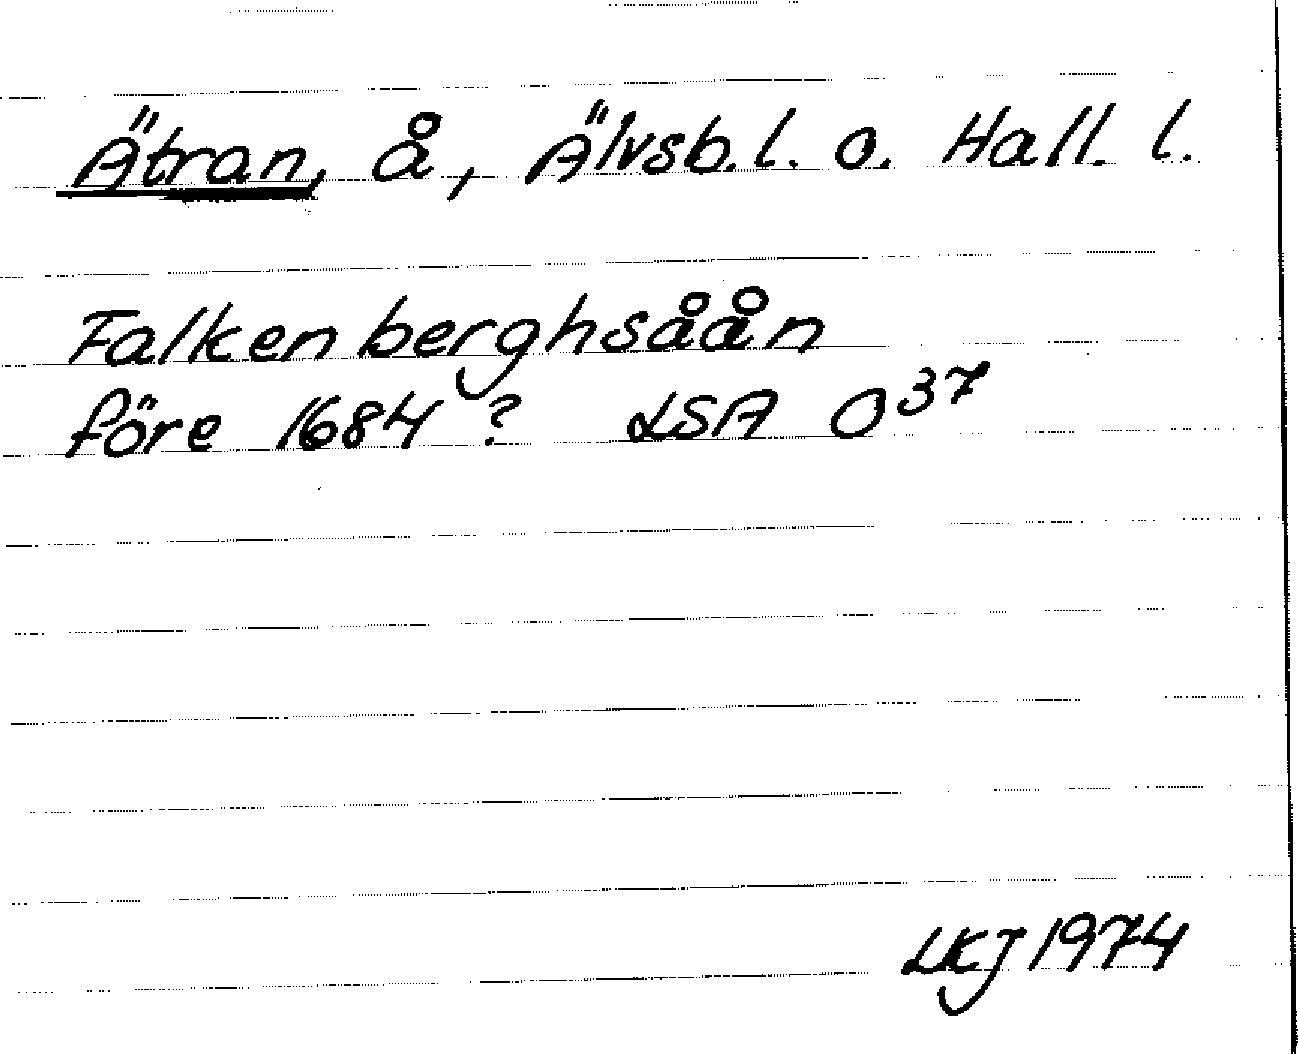 Ätran, å, Älvsb. l. o. Hall. l.
Falkenberghsåån
före 1684? LSA O37
LKJ 1974